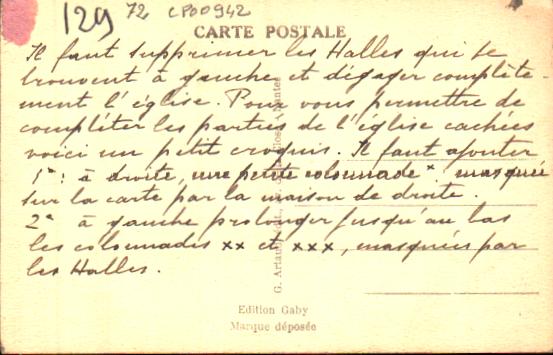 129 72 CP00942
CARTE POSTALE
Il faut supprimer les Halles qui se
trouvent à gauche et dégager complète-
ment l'église. Pour vous permettre de
compléter les parties de l'église cachées
voici un petit croquis. Il faut ajouter
1° : à droite, une petite colonnade x masquée
sur la carte par la maison de droite.
2° à gauche prolonger jusqu'au bas
les colonnades xx et xxx, masquées par
les Halles.
G. Artaud Nantes
Edition Gaby
Marque déposée